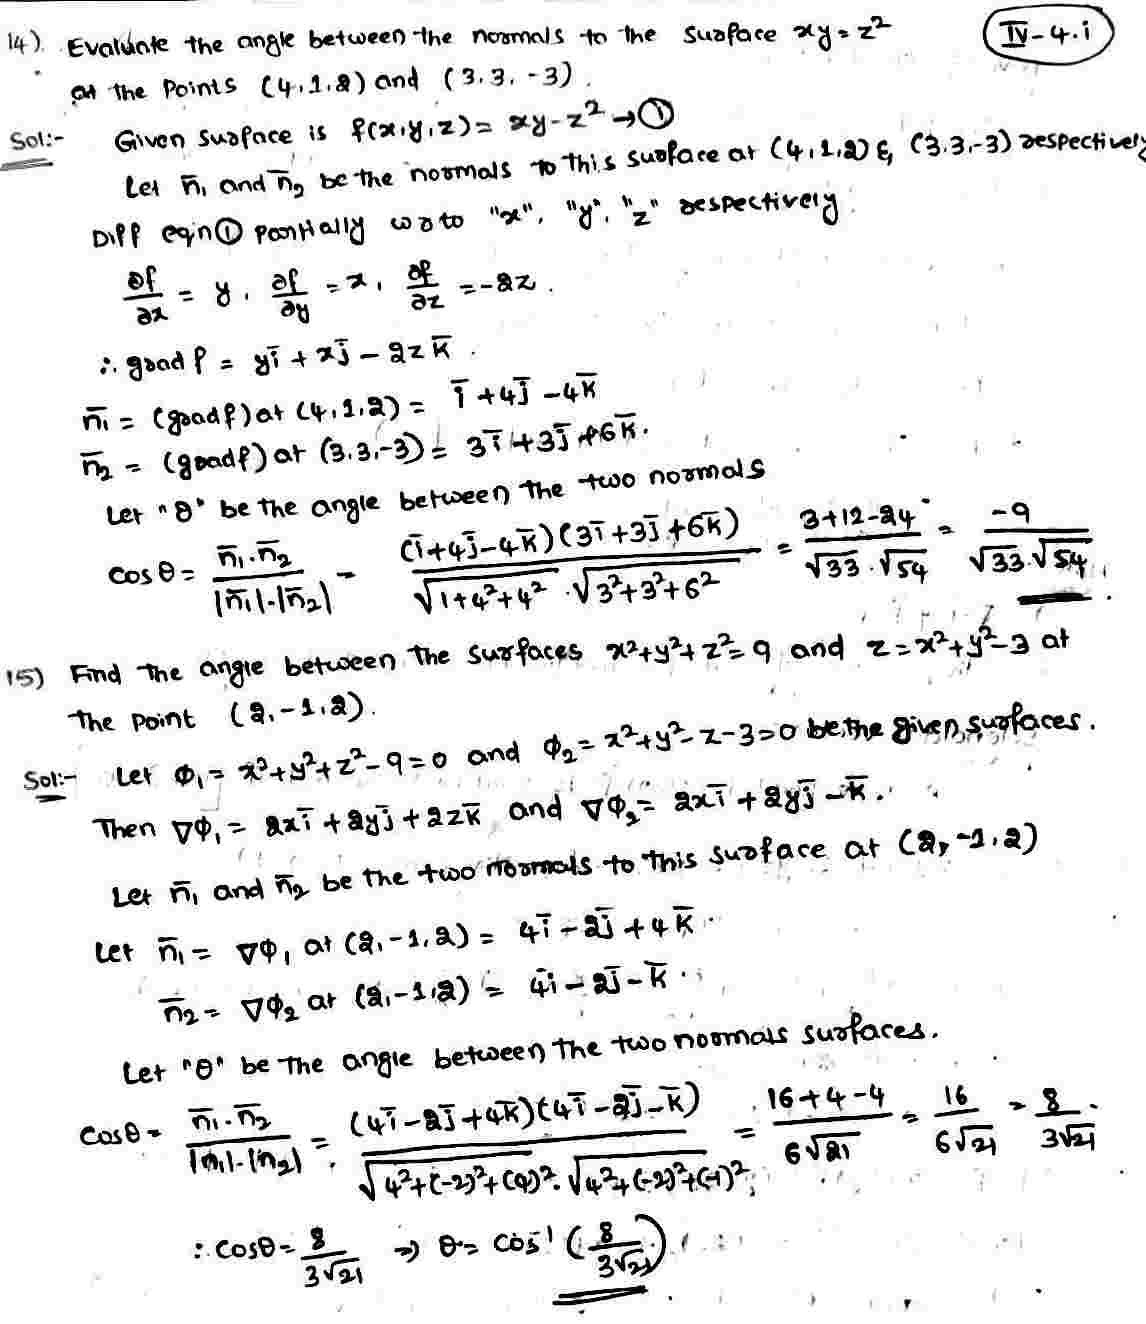 14). Evaluate the angle between the normals to the surface xy = z²
IV-4.i
at the points (4,1,2) and (3,3,-3).
Sol:- Given surface is f(x,y,z) = xy-z² → ①
Let n̄₁ and n̄₂ be the normals to this surface at (4,1,2) & (3,3,-3) respectively
Diff eqn ① partially w r to "x", "y", "z" respectively.
∂f/∂x = y, ∂f/∂y = x, ∂f/∂z = -2z.
∴ grad f = yī + xj̄ - 2zk̄.
n̄₁ = (grad f) at (4,1,2) = ī + 4j̄ - 4k̄
n̄₂ = (grad f) at (3,3,-3) = 3ī + 3j̄ + 6k̄.
Let "θ" be the angle between the two normals
cosθ = n̄₁.n̄₂/|n̄₁|.|n̄₂| = (ī+4j̄-4k̄)(3ī+3j̄+6k̄)/√1+4²+4² .√3²+3²+6² = 3+12-24/√33.√54 = -9/√33.√54.
15) Find the angle between the surfaces x²+y²+z²=9 and z=x²+y²-3 at
the point (2,-1,2).
Sol:- Let φ₁ = x²+y²+z²-9=0 and φ₂ = x²+y²-z-3=0 be the given surfaces.
Then ∇φ₁ = 2xī + 2yj̄ + 2zk̄ and ∇φ₂ = 2xī + 2yj̄ - k̄.
Let n̄₁ and n̄₂ be the two normals to this surface at (2,-1,2)
Let n̄₁ = ∇φ₁ at (2,-1,2) = 4ī - 2j̄ + 4k̄
n̄₂ = ∇φ₂ at (2,-1,2) = 4ī - 2j̄ - k̄
Let "θ" be the angle between the two normals surfaces.
cosθ = n̄₁.n̄₂/|n̄₁|.|n̄₂| = (4ī-2j̄+4k̄)(4ī-2j̄-k̄)/√4²+(-2)²+(4)².√4²+(-2)²+(-1)² = 16+4-4/6√21 = 16/6√21 = 8/3√21.
∴ cosθ = 8/3√21 ⇒ θ = cos⁻¹(8/3√21)